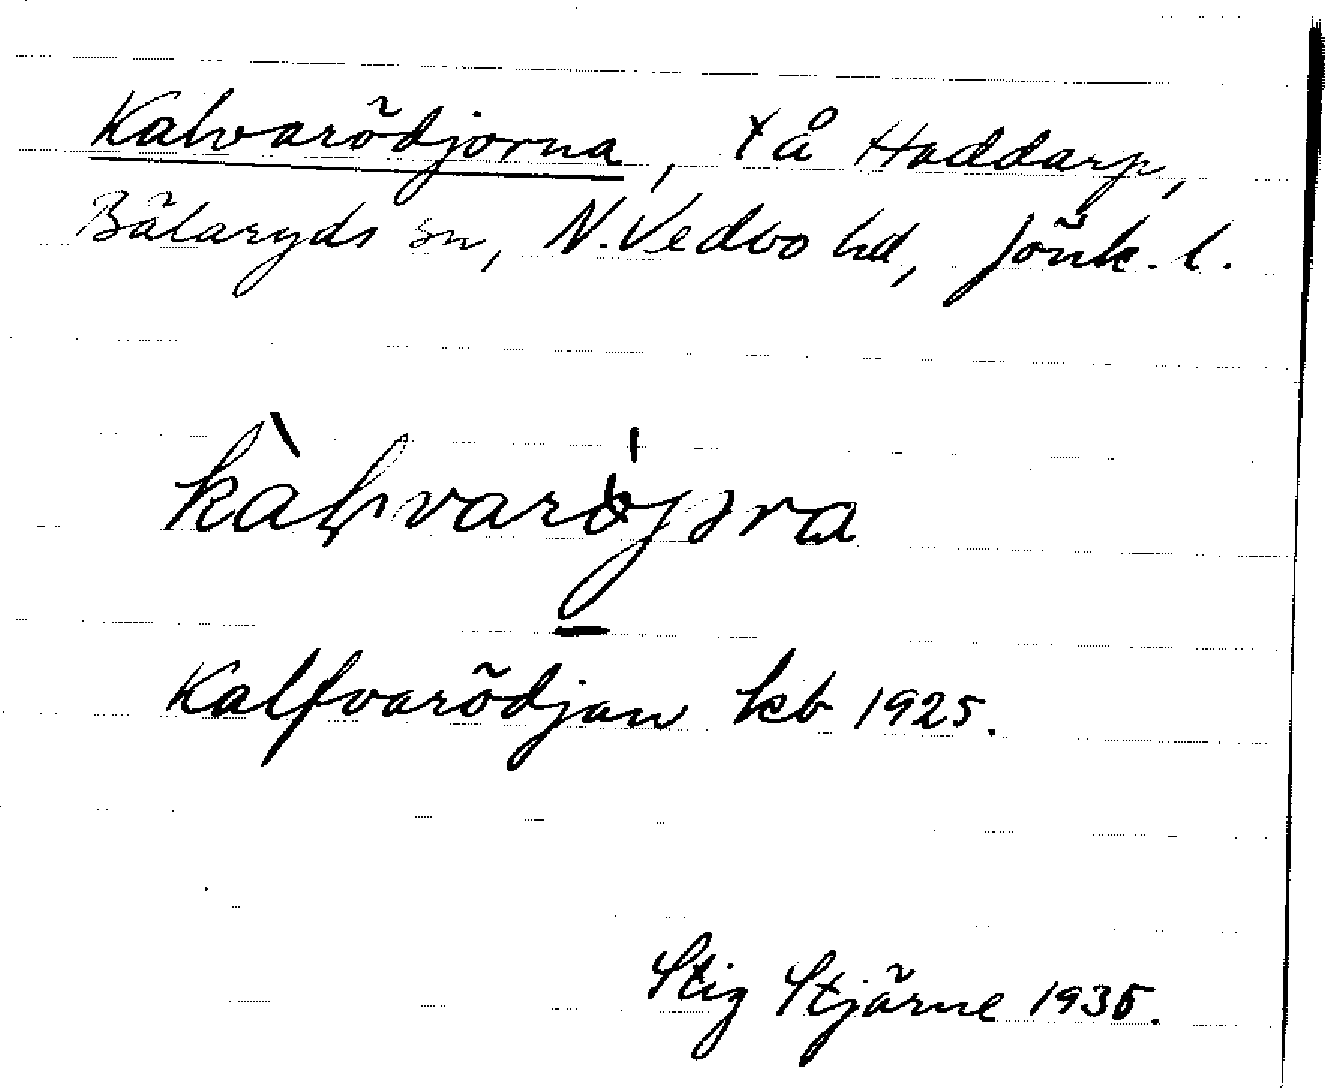 Kalvarödjorna, tå Haddarp,
Bälaryds sn, N. Vedbo hd, Jönk. l.
Kalfvarödjan kb 1925.
Stig Stjärne 1935.